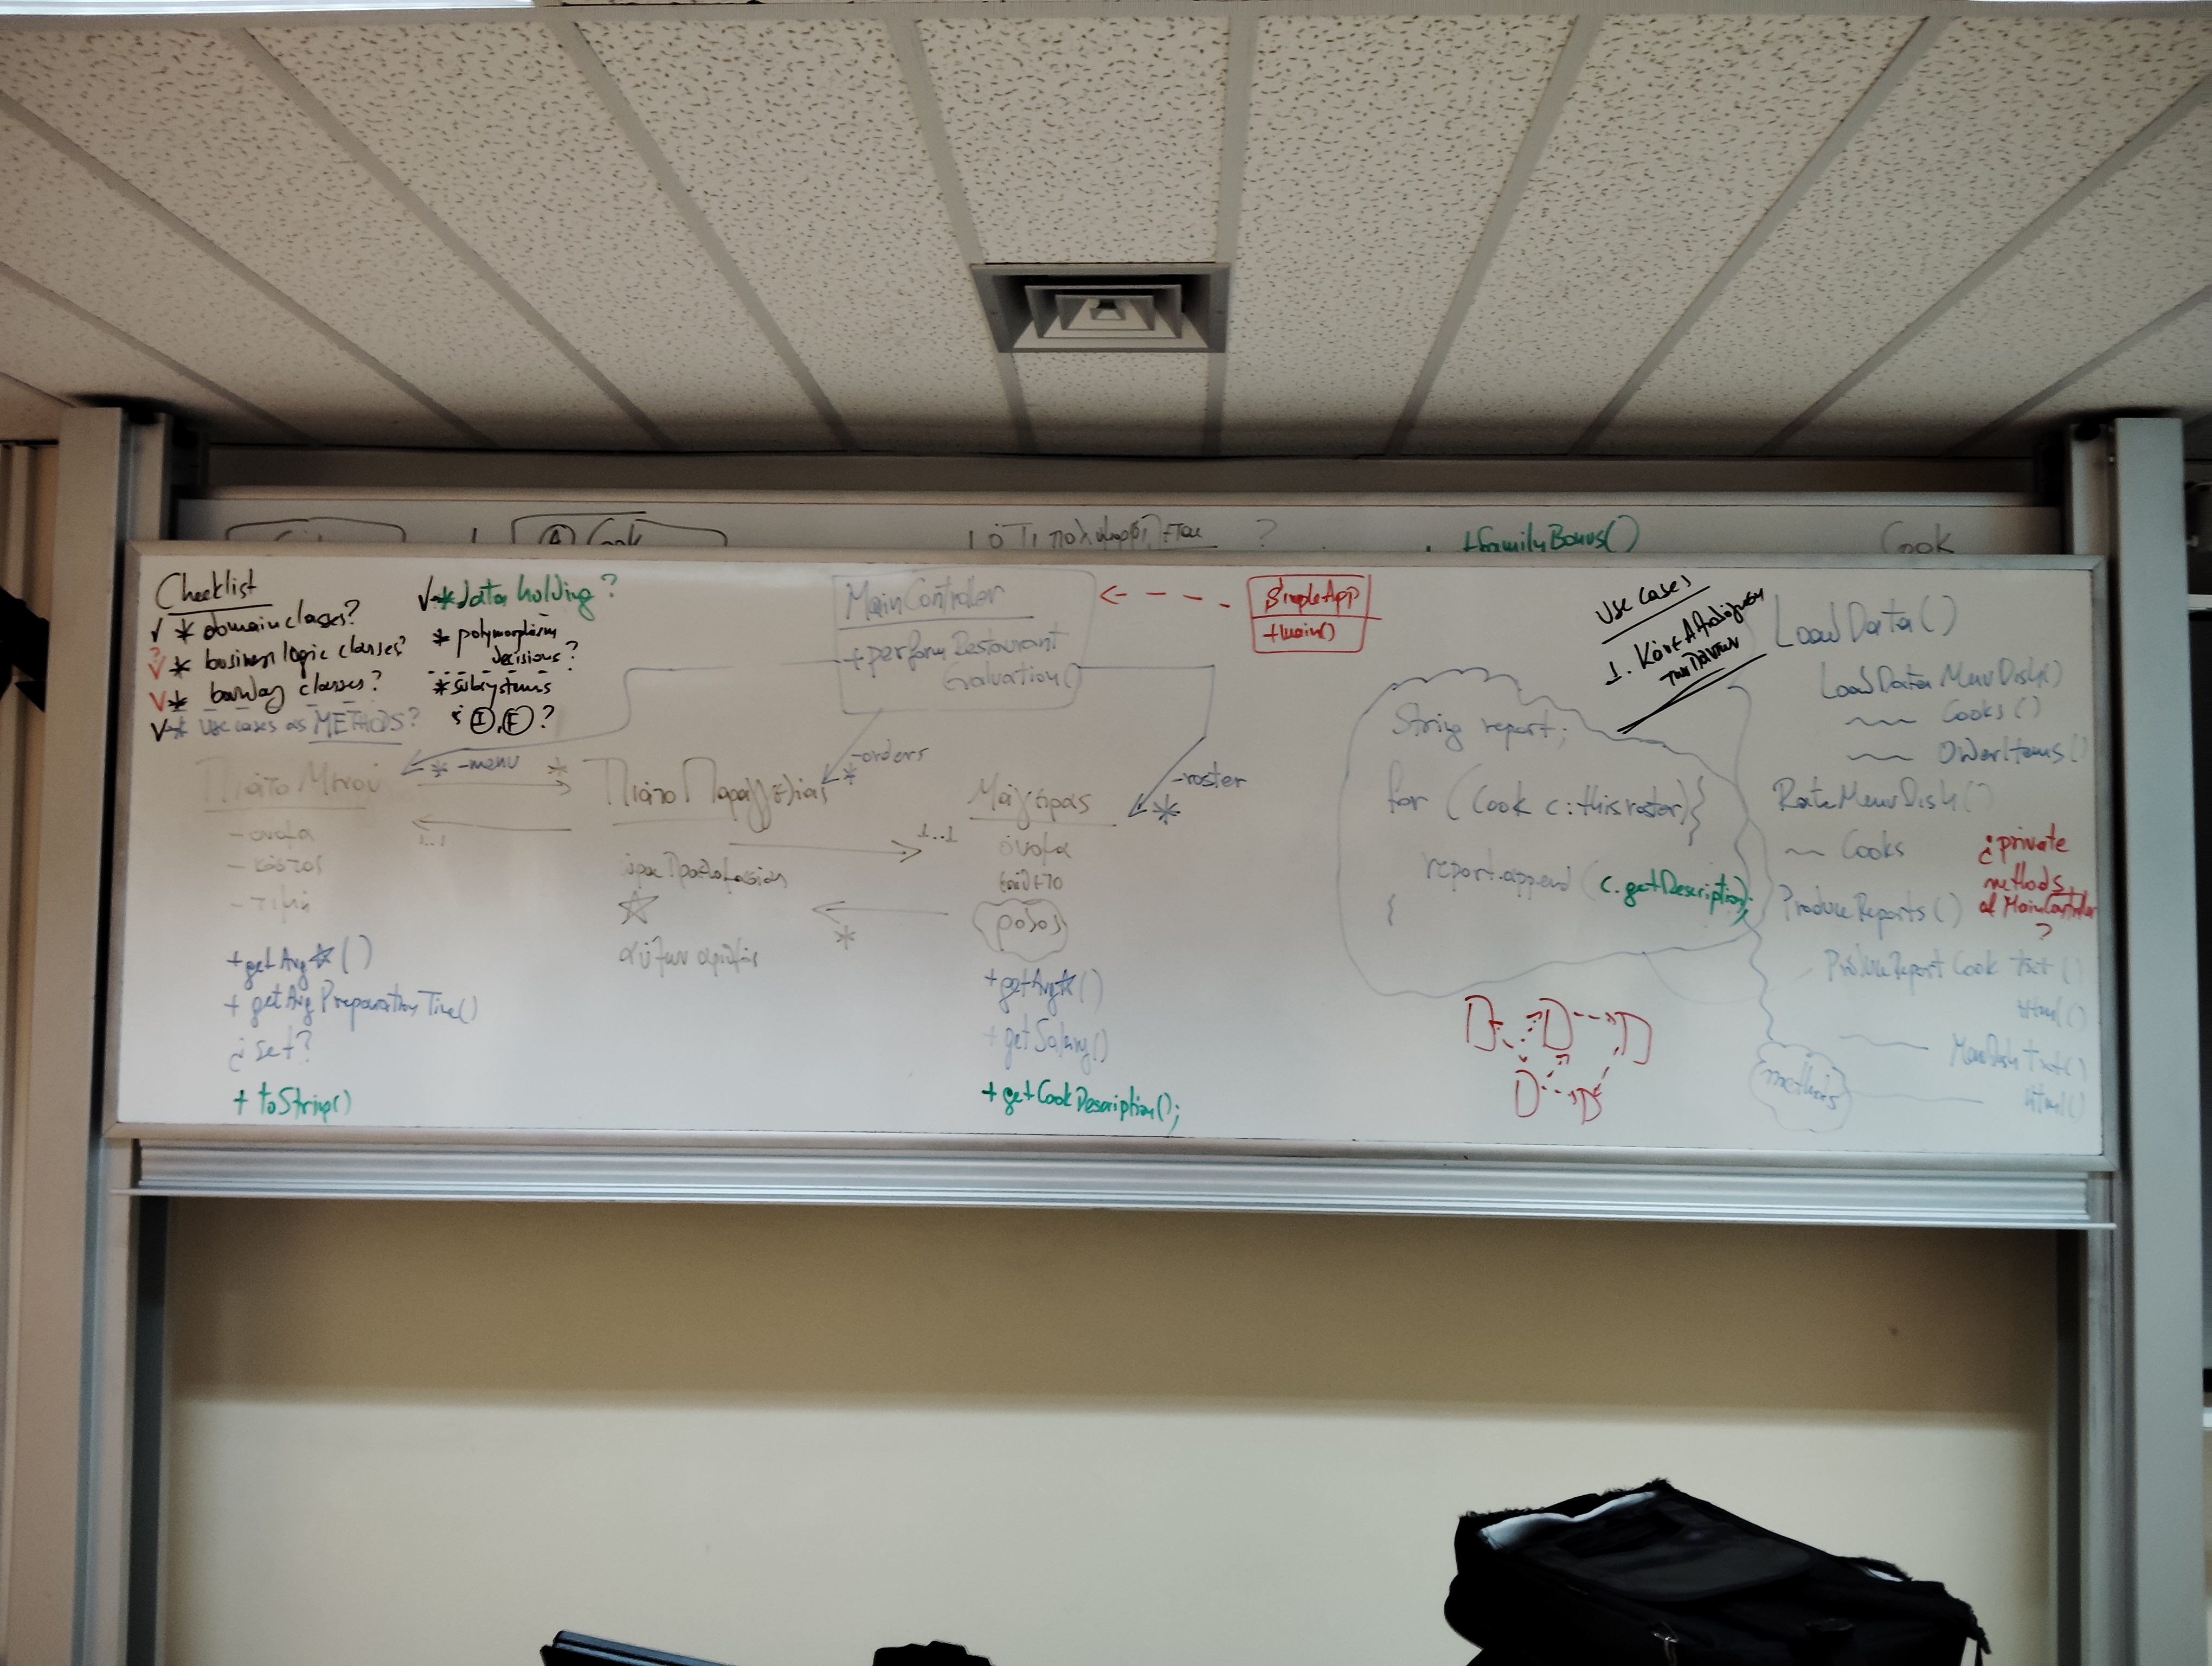 Cook
ό τι
?
+familyBonus()
Cook
Checklist
✓ * domain classes?
✓ * business logic classes?
✓ * boundary classes?
✓ * use cases as METHODS?
✓ * data holding?
* polymorphism
decisions?
* subsystems
¿ I, F ?
MainController
+performRestaurant
Evaluation()
SimpleApp
+main()
* -menu *
-orders
*
-roster
*
Πιάτο Μενού
- όνομα
- κόστος
- τιμή
+getAvg☆()
+ getAvgPreparationTime()
¿ set?
+ toString()
1..1
Πιάτο Παραγγελίας
ώρα Προετοιμασίας
☆
αύξων αριθμός
1..1
*
Μάγειρας
όνομα
επίθετο
ρόλος
+getAvg☆()
+getSalary()
+getCookDescription();
Use cases
1. Κάνε Αξιολόγηση
String report;
for (Cook c: this.roster){
report.append(c.getDescription);
}
D D D
D D
LoadData()
LoadDataMenuDish()
~~ Cooks()
~~ OrderItems()
RateMenuDish()
~~ Cooks
ProduceReports()
ProduceReport Cook txt()
Html()
MenuDish txt()
Html()
methods
¿ private
methods
of MainController
?